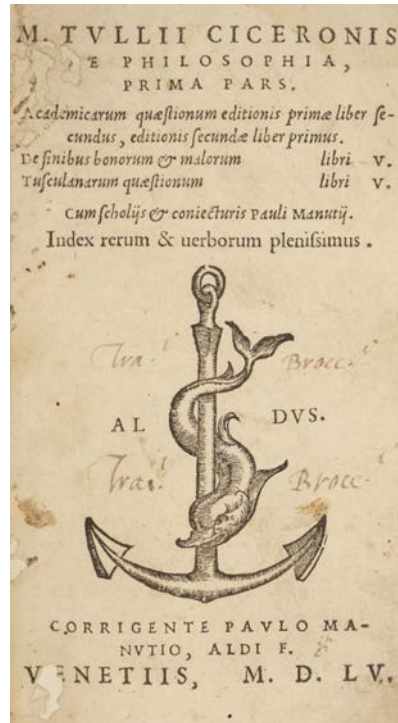 M. TVLLII CICERONIS
E PHILOSOPHIA,
PRIMA PARS.
Academicarum quæſtionum editionis primæ liber ſe-
cundus, editionis ſecundæ liber primus.
De finibus bonorum & malorum libri V.
Tuſculanarum quæſtionum libri V.
Cum ſcholijs & coniecturis Pauli Manutij.
Index rerum & uerborum pleniſſimus.
Tra. Brocc.
AL DVS.
Trai. Brocc.
CORRIGENTE PAVLO MA-
NVTIO, ALDI F.
VENETIIS, M. D. LV.